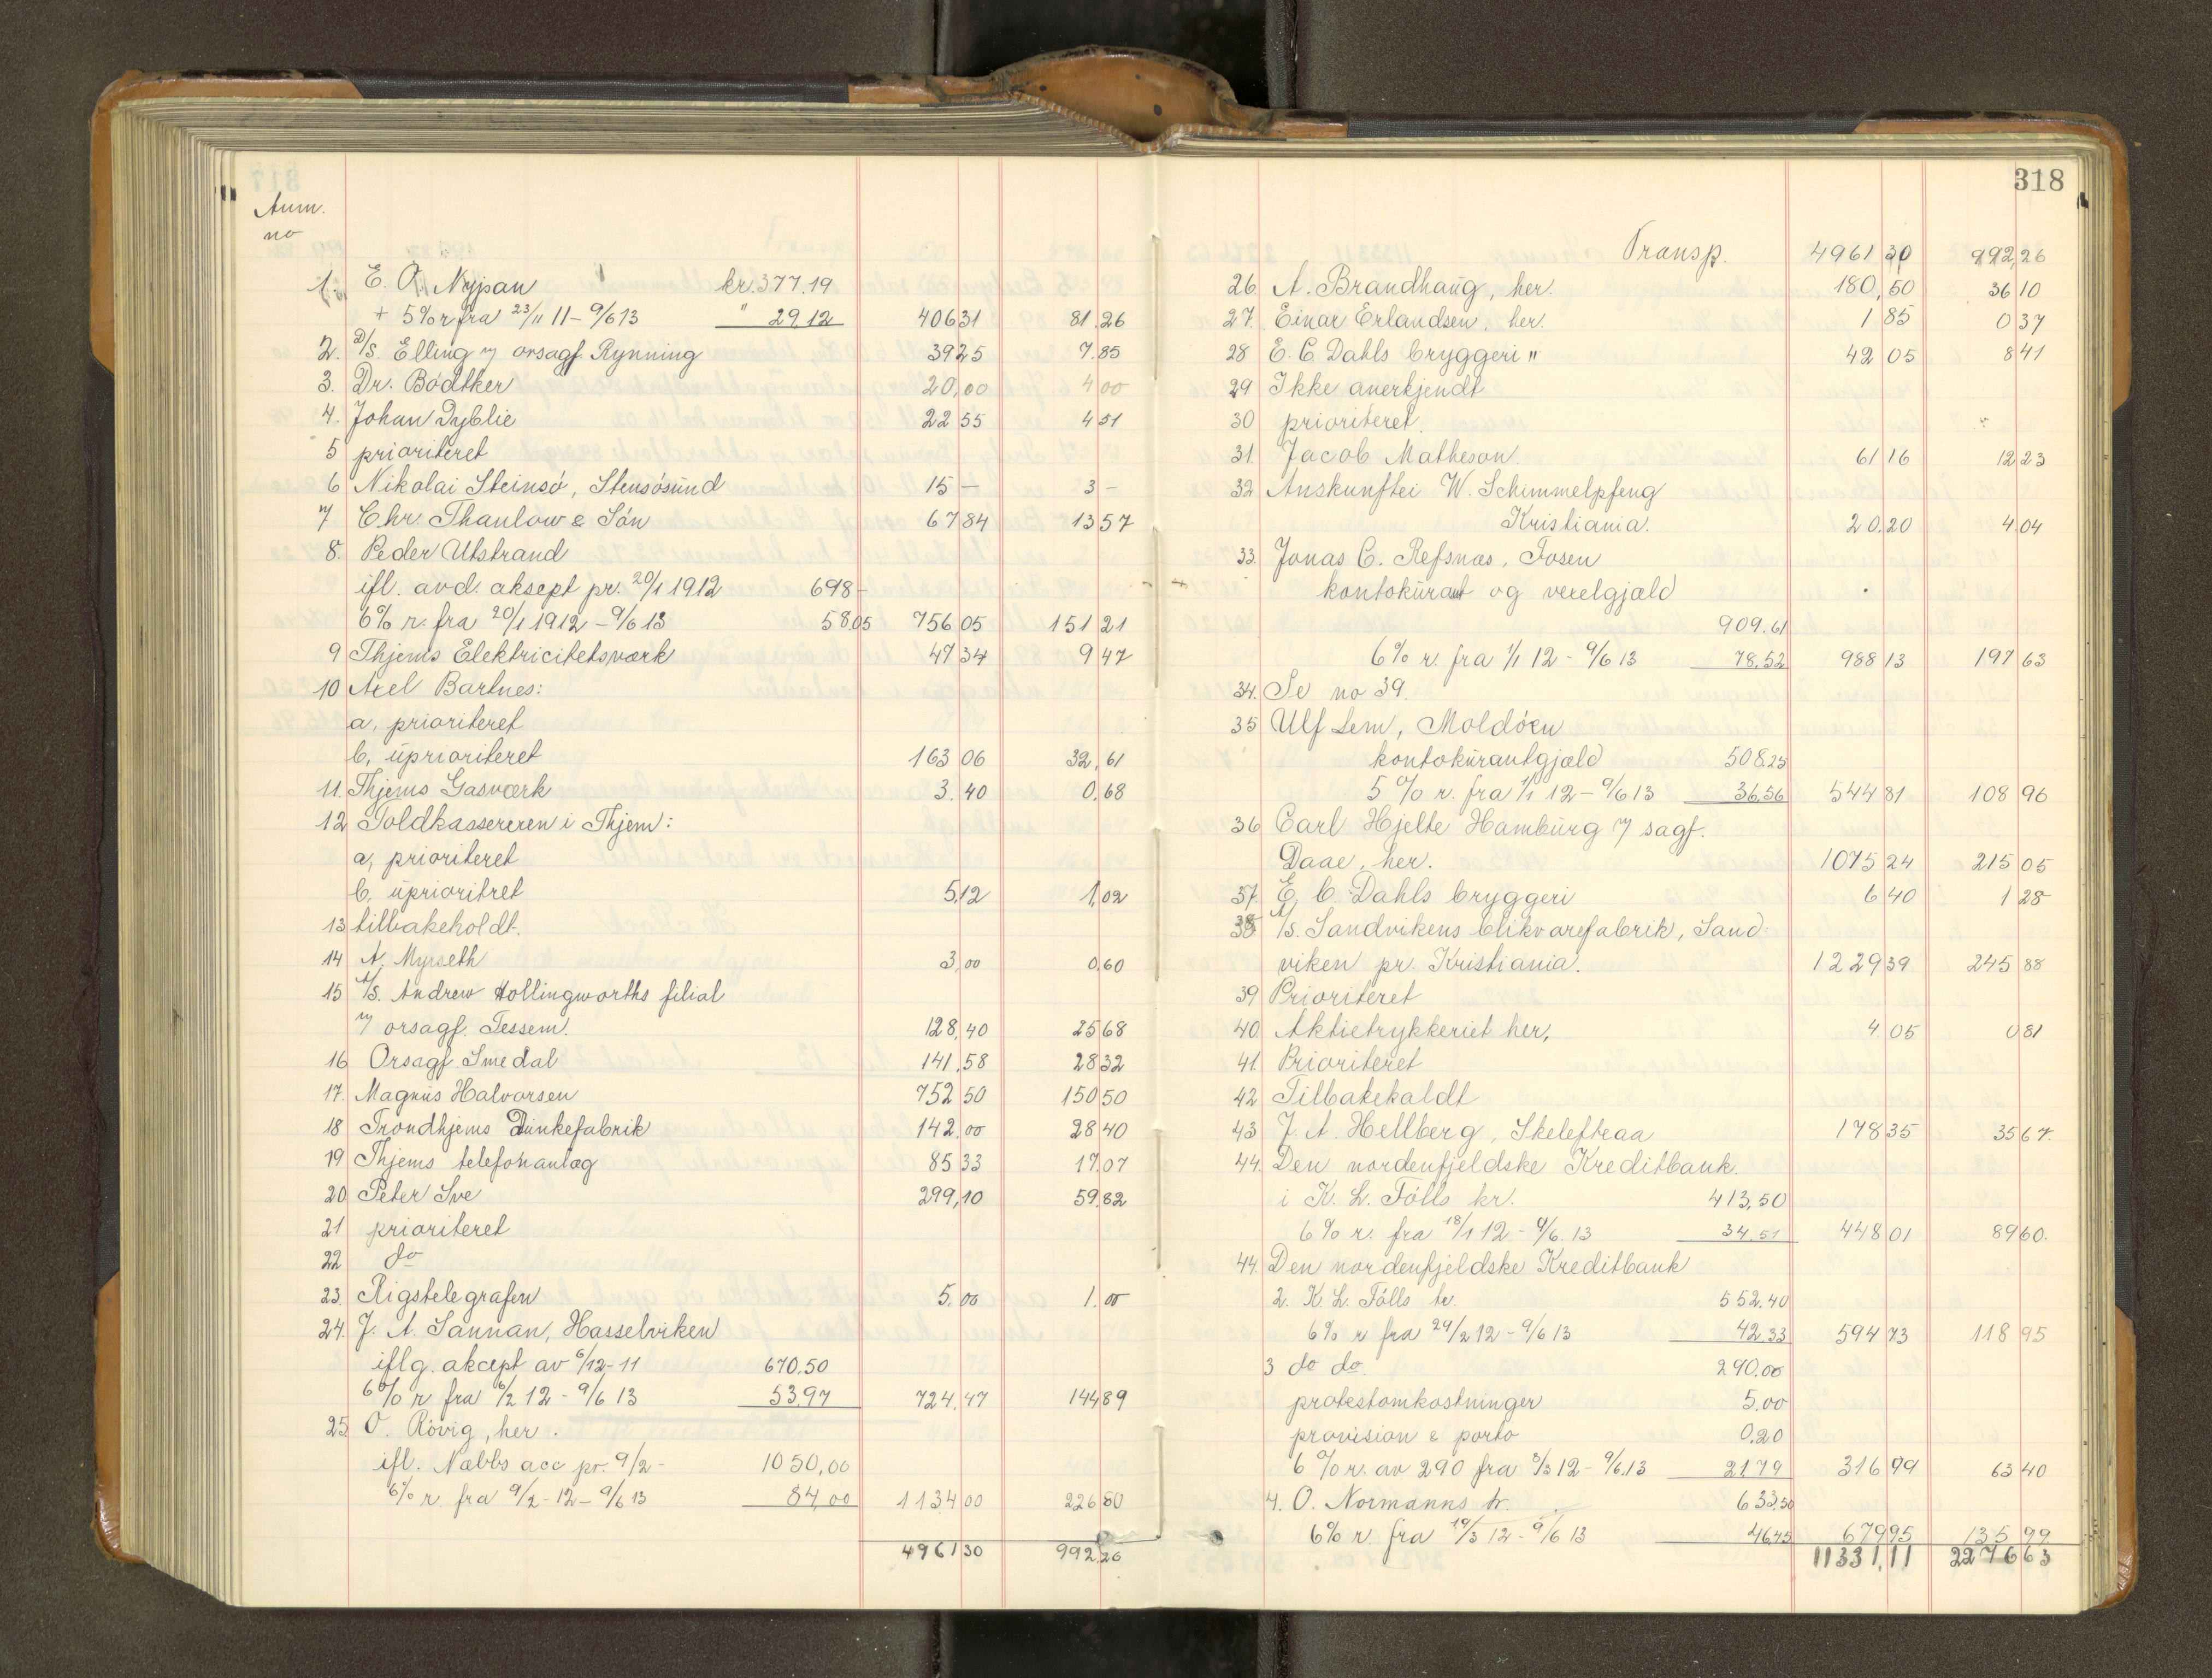 Anm.
no
1. E. O. Nypan kr. 377.19
+ 5% r fra 23/11 11 – 9/6 13 " 29.12 406 31 81.26
2. D/S. Elling v/ orsagf. Rynning 39 25 7.85
3. Dr. Bödtker 20,00 4 00
4. Johan Dyblie 22 55 4 51
5 prioriteret
6 Nikolai Steinsö, Stensösund 15 – 3 –
7 Chr. Thaulow & Sön 67 84 13 57
8. Peder Utstrand
ifl. avd. aksept pr. 20/1 1912 698 –
6% r. fra 20/1 1912 – 9/6 13 58.05 756 05 151 21
9 Thjems Elektricitetsværk 47 34 9 47
10 Axel Bartnes:
a, prioriteret
b, uprioriteret 163 06 32,61
11. Thjems Gasværk 3.40 0.68
12 Toldkassereren i Thjem:
a, prioriteret
b, uprioritret 5,12 1,02
13 tilbakeholdt.
14 A. Myrseth 3,00 0,60
15 A/S. Andrew Hollingworths filial
v/ orsagf. Tessem. 128,40 25 68
16 Orsagf Smedal 141,58 28 32
17. Magnus Halvorsen 752 50 150 50
18 Trondhjems Dunkefabrik 142.00 28 40
19 Thjems telefonanlæg 85 33 17.07
20 Peter Sve 299,10 59.82
21 prioriteret
22 do
23. Rigstelegrafen 5.00 1.00
24. J. A. Sannan, Hasselviken
iflg. akcept av 6/12-11 670.50
6% r fra 6/2 12 – 9/6 13 53.97 724.47 144 89
25 O. Rövig, her.
ifl. Nabbs acc pr. 9/2 – 1050,00
6% r. fra 9/2-12 – 9/6 13 84,00 1134 00 226 80
4961 30 992 26
318
Transp. 4961 30 992,26
26 A. Brandhaug, her. 180,50 36 10
27. Einar Erlandsen, her. 1 85 0 37
28 E. C. Dahls bryggeri " 42 05 8 41
29 Ikke anerkjendt
30 prioriteret.
31. Jacob Matheson. 61 16 12 23
32 Auskunftei W. Schimmelpfeng
Kristiania. 20.20 4 04
33. Jonas C. Refsnæs, Fosen
kontokurant og vexelgjæld
909.61
6% r. fra 1/1 12 – 9/6 13 78,52 988 13 197 63
34. Se no 39.
35 Ulf Lem, Moldöen
kontokurantgjæld 508.25
5% r. fra 1/1 12 – 9/6 13 36,56 544 81 108 96
36 Carl Hjelte Hamburg v/ sagf.
Daae, her. 1075 24 215 05
37. E. C. Dahls bryggeri 6 40 1 28
38 A/S. Sandvikens blikvarefabrik, Sand-
viken pr. Kristiania. 1229 39 245 88
39 Prioriteret
40. Aktietrykkeriet her, 4.05 0 81
41. Prioriteret
42 Tilbakekaldt
43 J. A. Hellberg, Skelefteaa 178 35 35 67.
44. Den nordenfjeldske Kreditbank.
1 K. L. Fölls kr. 413,50
6% r. fra 18/1 12 – 9/6. 13 34,51 448 01 89 60.
44. Den nordenfjeldske Kreditbank
2. K. L. Fölls tr. 552.40
6% r fra 29/2 12 – 9/6 13 42.33 594 73 118 95
3 do do 290.00
protestomkostninger 5.00
provision & porto 0,20
6% r. av 290 fra 8/3 12 – 9/6.13 21 79 316 99 63 40
4. O. Normanns tr. 633,50
6% r. fra 19/3 12 – 9/6 13 46,45 679 95 135 99
11331,11 2276 63